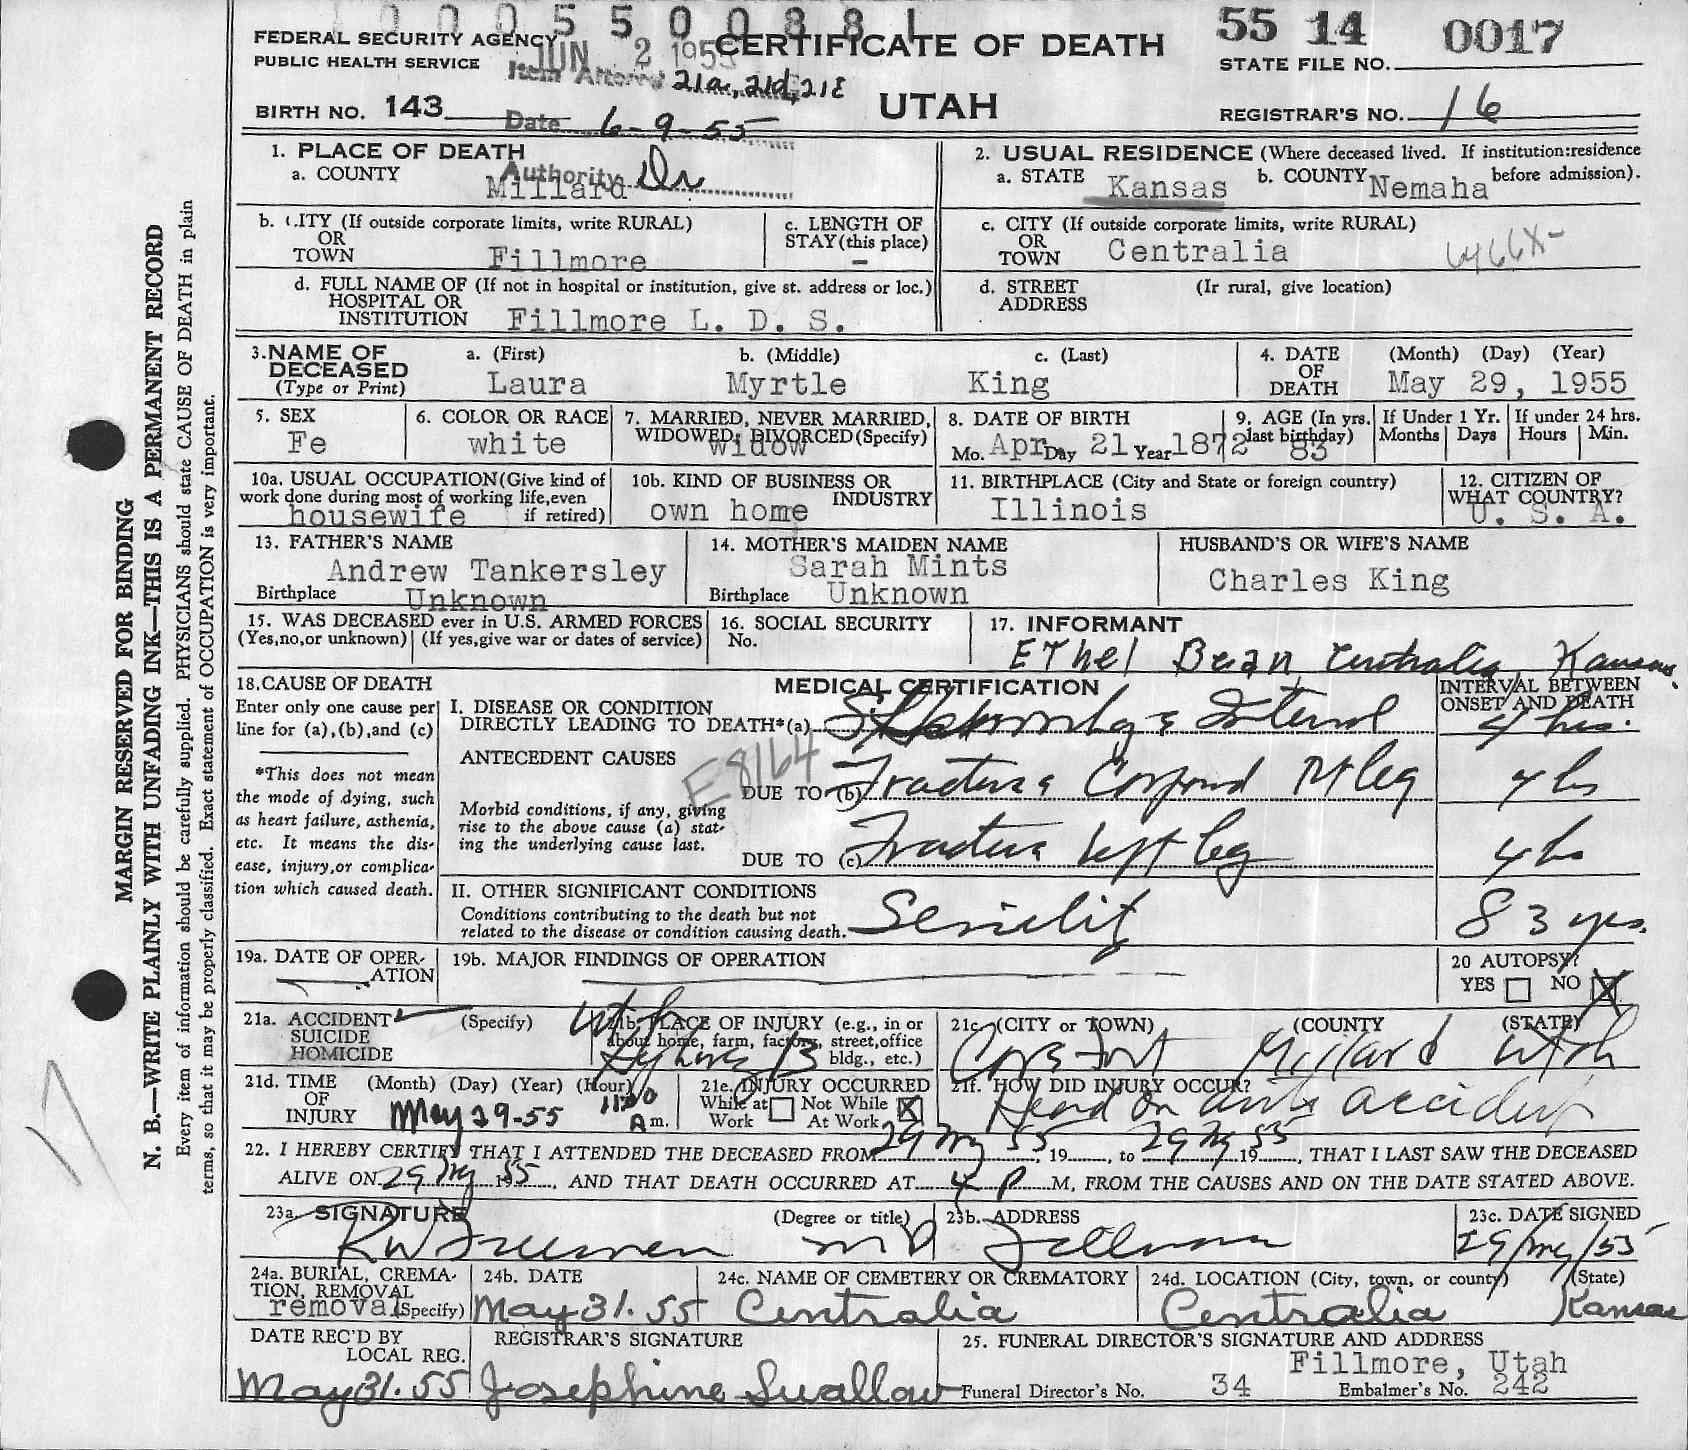 0005500881
FEDERAL SECURITY AGENCY
PUBLIC HEALTH SERVICE
JUN 2 1955
CERTIFICATE OF DEATH
UTAH
55 14 0017
STATE FILE NO.
Item Altered 21a, 21d, 21E
BIRTH NO. 143
Date 6-9-55
REGISTRAR'S NO. 16
Authority Dr
1. PLACE OF DEATH
a. COUNTY
Millard
2. USUAL RESIDENCE (Where deceased lived. If institution: residence before admission).
a. STATE Kansas b. COUNTY Nemaha
b. CITY (If outside corporate limits, write RURAL)
OR
TOWN
Fillmore
c. LENGTH OF
STAY (this place)
-
c. CITY (If outside corporate limits, write RURAL)
OR
TOWN
Centralia
6466X-
d. FULL NAME OF (If not in hospital or institution, give st. address or loc.)
HOSPITAL OR
INSTITUTION
Fillmore L. D. S.
d. STREET
ADDRESS
(Ir rural, give location)
3. NAME OF
DECEASED
(Type or Print)
a. (First)
Laura
b. (Middle)
Myrtle
c. (Last)
King
4. DATE
OF
DEATH
(Month) (Day) (Year)
May 29, 1955
5. SEX
Fe
6. COLOR OR RACE
white
7. MARRIED, NEVER MARRIED,
WIDOWED, DIVORCED (Specify)
widow
8. DATE OF BIRTH
Mo. Apr Day 21 Year 1872
9. AGE (In yrs.
last birthday)
83
If Under 1 Yr.
Months Days
If under 24 hrs.
Hours Min.
10a. USUAL OCCUPATION (Give kind of
work done during most of working life, even
if retired)
housewife
10b. KIND OF BUSINESS OR
INDUSTRY
own home
11. BIRTHPLACE (City and State or foreign country)
Illinois
12. CITIZEN OF
WHAT COUNTRY?
U. S. A.
13. FATHER'S NAME
Andrew Tankersley
Birthplace Unknown
14. MOTHER'S MAIDEN NAME
Sarah Mints
Birthplace Unknown
HUSBAND'S OR WIFE'S NAME
Charles King
15. WAS DECEASED ever in U.S. ARMED FORCES
(Yes, no, or unknown) (If yes, give war or dates of service)
16. SOCIAL SECURITY
No.
17. INFORMANT
Ethel Bean, Centralia, Kansas.
18. CAUSE OF DEATH
Enter only one cause per
line for (a), (b), and (c)
*This does not mean
the mode of dying, such
as heart failure, asthenia,
etc. It means the dis-
ease, injury, or complica-
tion which caused death.
MEDICAL CERTIFICATION
INTERVAL BETWEEN
ONSET AND DEATH
I. DISEASE OR CONDITION
DIRECTLY LEADING TO DEATH* (a) Internal
4 hrs.
ANTECEDENT CAUSES
E8164
Morbid conditions, if any, giving
rise to the above cause (a) stat-
ing the underlying cause last.
DUE TO (b) Fracture Compound Rt leg
4 hs
DUE TO (c) Fracture left leg
4 hs
II. OTHER SIGNIFICANT CONDITIONS
Conditions contributing to the death but not
related to the disease or condition causing death.
Senility
83 yrs.
19a. DATE OF OPER-
ATION
19b. MAJOR FINDINGS OF OPERATION
20 AUTOPSY?
YES NO X
21a. ACCIDENT ✓
SUICIDE
HOMICIDE
(Specify)
21b. PLACE OF INJURY (e.g., in or
about home, farm, factory, street, office
bldg., etc.)
21c. (CITY or TOWN) (COUNTY (STATE)
Cove Fort Millard Utah
21d. TIME
OF
INJURY
(Month) (Day) (Year) (Hour)
May 29-55 Am.
21e. INJURY OCCURRED
While at
Work
Not While
At Work X
21f. HOW DID INJURY OCCUR?
Head on auto accident
22. I HEREBY CERTIFY THAT I ATTENDED THE DECEASED FROM 29 May 55, 19, to 29 May 55 19, THAT I LAST SAW THE DECEASED
ALIVE ON 29 My 55, AND THAT DEATH OCCURRED AT 4 P M, FROM THE CAUSES AND ON THE DATE STATED ABOVE.
23a. SIGNATURE
(Degree or title)
RW Freeman MD
23b. ADDRESS
Fillmore
23c. DATE SIGNED
29/My/55
24a. BURIAL, CREMA-
TION, REMOVAL
(Specify)
removal
24b. DATE
May 31. 55
24c. NAME OF CEMETERY OR CREMATORY
Centralia
24d. LOCATION (City, town, or county) (State)
Centralia Kansas
DATE REC'D BY
LOCAL REG.
May 31. 55
REGISTRAR'S SIGNATURE
Josephine Swallow
25. FUNERAL DIRECTOR'S SIGNATURE AND ADDRESS
Fillmore, Utah
Funeral Director's No. 34 Embalmer's No. 242
MARGIN RESERVED FOR BINDING
N. B.—WRITE PLAINLY WITH UNFADING INK—THIS IS A PERMANENT RECORD
Every item of information should be carefully supplied. PHYSICIANS should state CAUSE OF DEATH in plain
terms, so that it may be properly classified. Exact statement of OCCUPATION is very important.
17